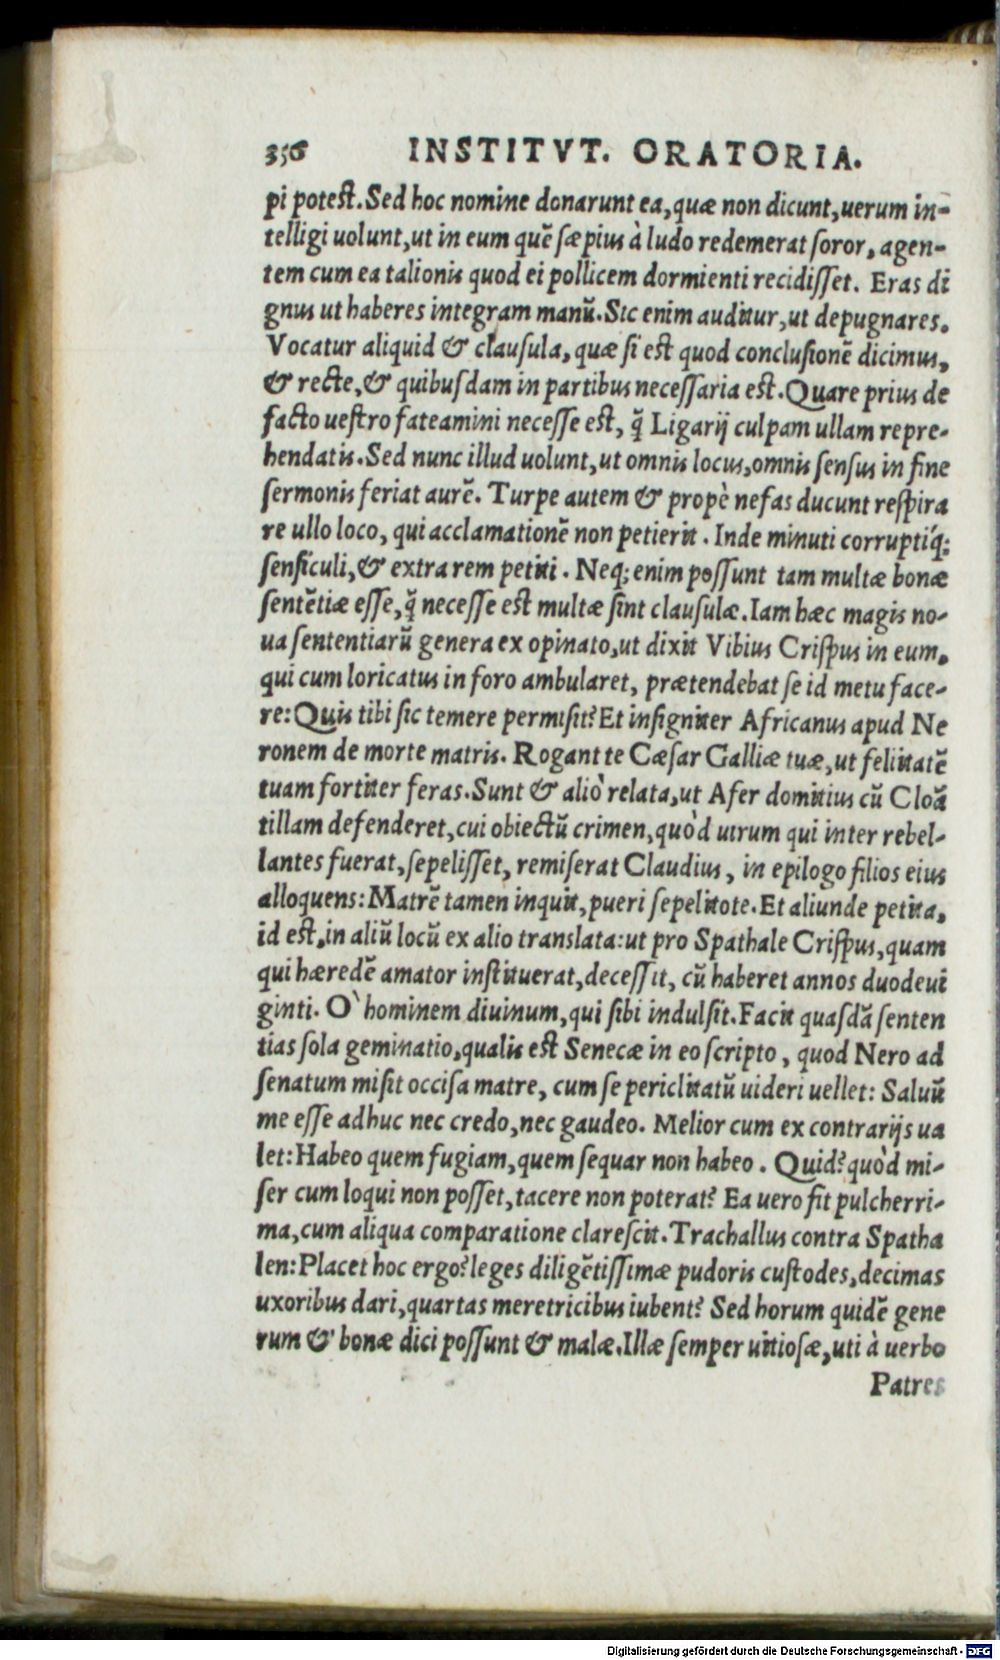 356 INSTITVT. ORATORIA.
pi potest. Sed hoc nomine donarunt ea, quæ non dicunt, uerum in-
telligi uolunt, ut in eum quẽ sæpius à ludo redemerat soror, agen-
tem cum ea talionis quod ei pollicem dormienti recidisset. Eras di
gnus ut haberes integram manũ. Sic enim auditur, ut depugnares.
Vocatur aliquid & clausula, quæ si est quod conclusionẽ dicimus,
& recte, & quibusdam in partibus necessaria est. Quare prius de
facto uestro fateamini necesse est, q̃ Ligarij culpam ullam repre-
hendatis. Sed nunc illud uolunt, ut omnis locus, omnis sensus in fine
sermonis feriat aurẽ. Turpe autem & propè nefas ducunt respira
re ullo loco, qui acclamationẽ non petierit. Inde minuti corruptíq;
sensiculi, & extra rem petiti. Neq; enim possunt tam multæ bonæ
sentẽtiæ esse, q̃ necesse est multæ sint clausulæ. Iam hæc magis no-
ua sententiarũ genera ex opinato, ut dixit Vibius Crispus in eum,
qui cum loricatus in foro ambularet, prætendebat se id metu face-
re: Quis tibi sic temere permisit? Et insigniter Africanus apud Ne
ronem de morte matris. Rogant te Cæsar Galliæ tuæ, ut felicitatẽ
tuam fortiter feras. Sunt & aliò relata, ut Afer domitius cũ Cloã
tillam defenderet, cui obiectũ crimen, quòd uirum qui inter rebel-
lantes fuerat, sepelisset, remiserat Claudius, in epilogo filios eius
alloquens: Matrẽ tamen inquit, pueri sepelitote. Et aliunde petita,
id est, in aliũ locũ ex alio translata: ut pro Spathale Crispus, quam
qui hæredẽ amator instituerat, decessit, cũ haberet annos duodeui
ginti. O` hominem diuinum, qui sibi indulsit. Facit quasdã senten
tias sola geminatio, qualis est Senecæ in eo scripto, quod Nero ad
senatum misit occisa matre, cum se periclitatũ uideri uellet: Saluũ
me esse adhuc nec credo, nec gaudeo. Melior cum ex contrarijs ua
let: Habeo quem fugiam, quem sequar non habeo. Quid? quòd mi-
ser cum loqui non posset, tacere non poterat? Ea uero fit pulcherri-
ma, cum aliqua comparatione clarescit. Trachallus contra Spatha
len: Placet hoc ergo? leges diligẽtissimæ pudoris custodes, decimas
uxoribus dari, quartas meretricibus iubent? Sed horum quidẽ gene
rum & bonæ dici possunt & malæ. Illæ semper uitiosæ, uti à uerbo
Patres
Digitalisierung gefördert durch die Deutsche Forschungsgemeinschaft - DFG